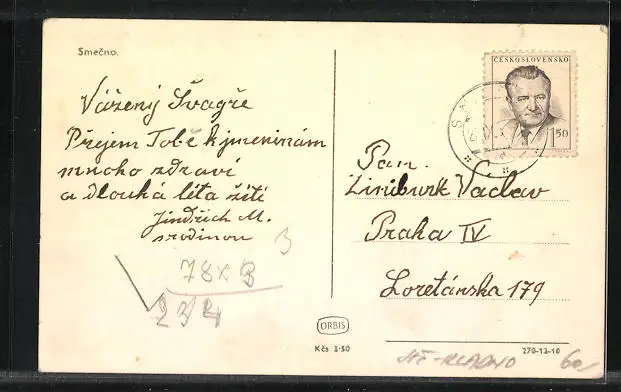 Smečno.
Vážený Švagře
Přejem Tobě k jmeninám
mnoho zdraví
a dlouhá léta žití
Jindřich M.
srodinou
3
78 x 3
234
ČESKOSLOVENSKO
1.50
Pan.
Václav
Praha IV
Loretánska 179
ORBIS
Kčs 3·50
270-12-10